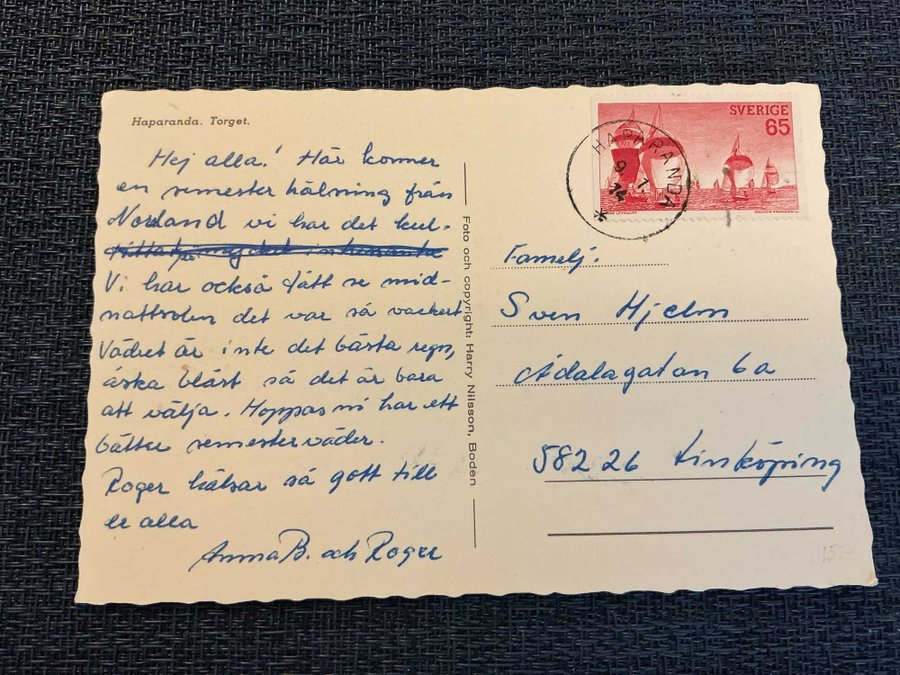 Haparanda. Torget.
Hej alla! Här kommer
en semester hälsning från
Norrland vi har det kul-
Vi har också fått se mid-
nattsolen det var så vackert
Vädret är inte det bästa regn,
åska blåst så det är bara
att välja. Hoppas ni har ett
bätter semesterväder.
Roger hälsar så gott till
er alla
Anna B. och Roger
Foto och copyright: Harry Nilsson, Boden
SVERIGE
65
HAPARANDA
9 7
74
Familj.
Sven Hjelm
Ådalagatan 6a
582 26 Linköping
15:-